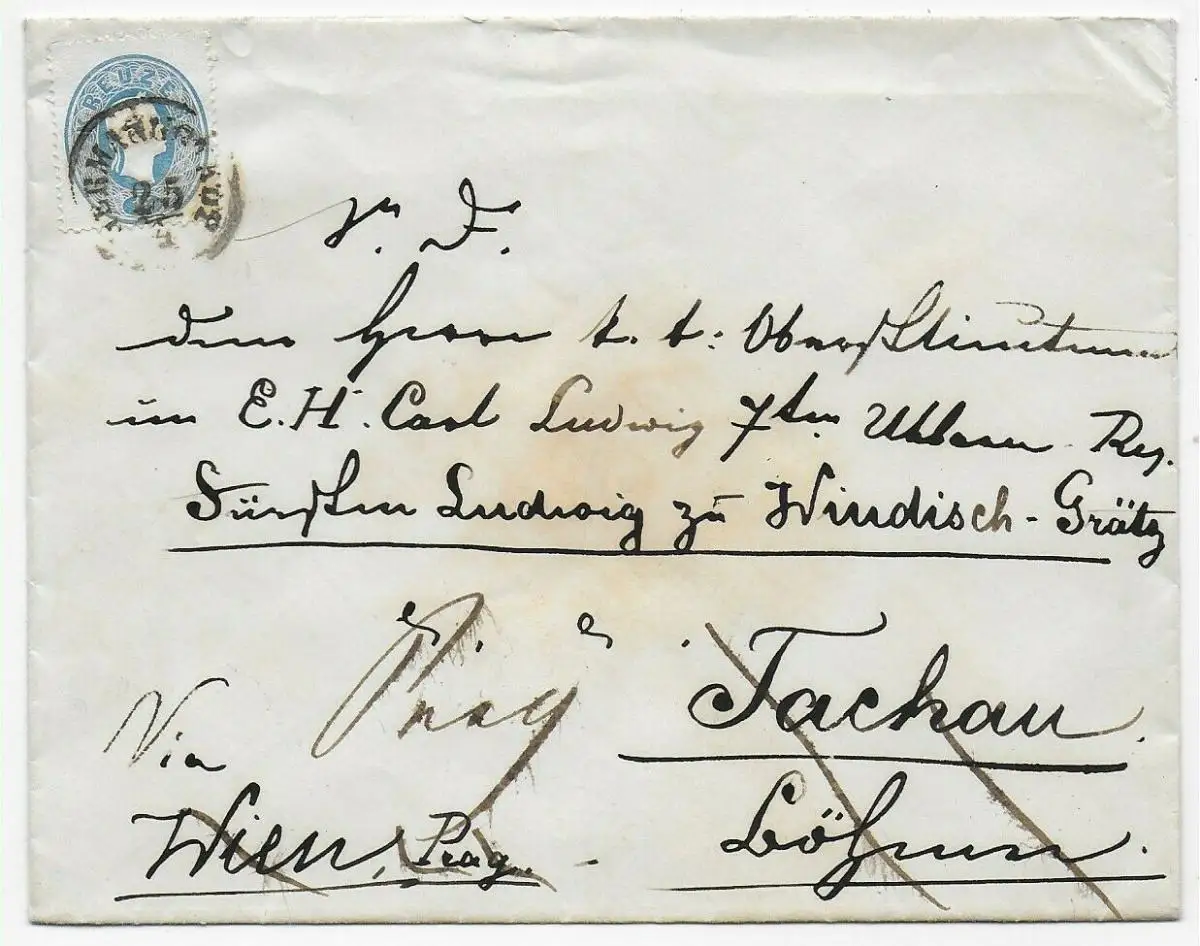 KREUZER
25
4
Sr. D.
dem Herrn k. k: Oberstlieutenant
im E. H. Carl Ludwig 7ten Uhlan Reg.
Fürsten Ludwig zu Windisch-Grätz
Prag
Tachau.
Via
Wien, Prag.
Böhmen.